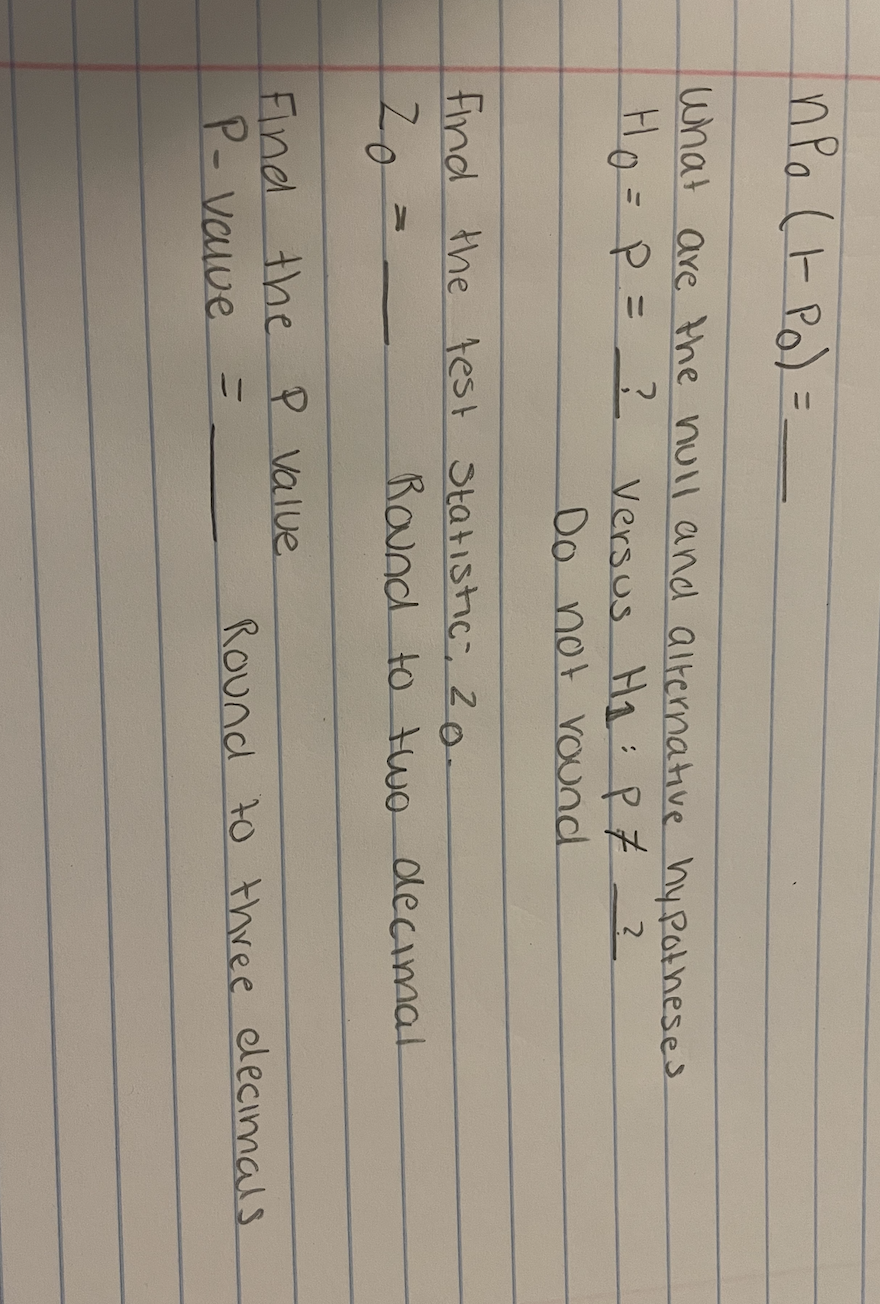 nP₀ (1-P₀) = ___
What are the null and alternative hypotheses
H₀ = P = _?_ versus H₁ : P ≠ _?_
Do not round
find the test statistic, Z₀.
Z₀ = ___ Round to two decimal
Find the P value
P-value = ___ Round to three decimals